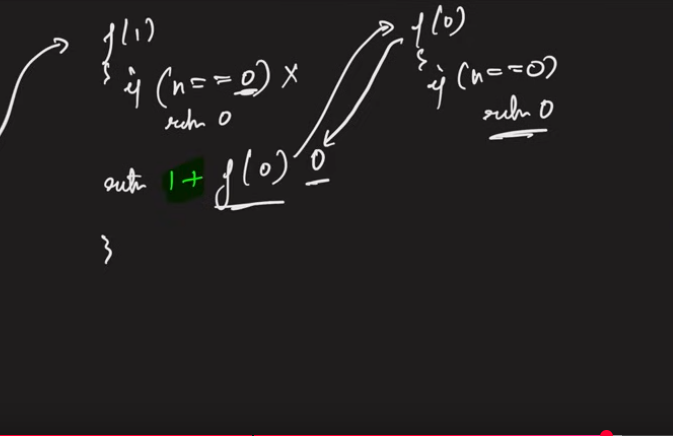 f(1)
{ if (n==0) X
return 0
return 1+ f(0) 0
}
f(0)
{
if (n==0)
return 0